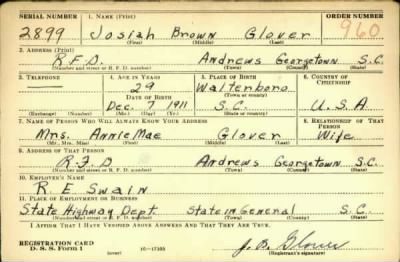 SERIAL NUMBER 1. NAME (Print) ORDER NUMBER
2899 Josiah Brown Glover 960
(First) (Middle) (Last)
2. ADDRESS (Print)
R.F.D. Andrews Georgetown S.C.
(Number and street or R. F. D. number) (Town) (County) (State)
3. TELEPHONE 4. AGE IN YEARS 5. PLACE OF BIRTH 6. COUNTRY OF CITIZENSHIP
— 29 Walterboro
DATE OF BIRTH (Town or county)
Dec. 7 1911 S.C. U.S.A.
(Exchange) (Number) (Mo.) (Day) (Yr.) (State or country)
7. NAME OF PERSON WHO WILL ALWAYS KNOW YOUR ADDRESS 8. RELATIONSHIP OF THAT PERSON
Mrs. Annie Mae Glover Wife
(Mr., Mrs., Miss) (First) (Middle) (Last)
9. ADDRESS OF THAT PERSON
R.F.D Andrews Georgetown S.C.
(Number and street or R. F. D. number) (Town) (County) (State)
10. EMPLOYER'S NAME
R. E. Swain
11. PLACE OF EMPLOYMENT OR BUSINESS
State Highway Dept. State in General S.C.
(Number and street or R. F. D. number) (Town) (County) (State)
I AFFIRM THAT I HAVE VERIFIED ABOVE ANSWERS AND THAT THEY ARE TRUE.
REGISTRATION CARD
D. S. S. FORM 1 (over) 16—17105 J. B. Glover
(Registrant's signature)